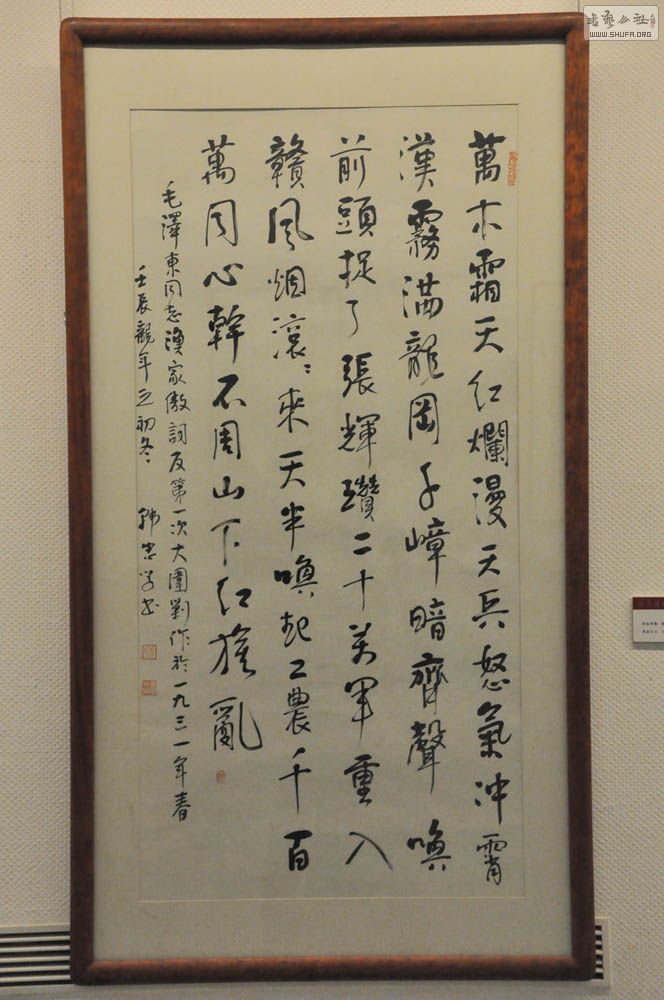 萬木霜天紅爛漫天兵怒氣沖霄
漢霧滿龍岡千嶂暗齊聲喚
前頭捉了張輝瓚二十萬軍重入
贛風烟滾〻來天半喚起工農千百
萬同心幹不周山下紅旗亂
毛澤東同志漁家傲詞反第一次大圍剿作於一九三一年春
壬辰龍年之初冬
書藝公社
WWW.SHUFA.ORG